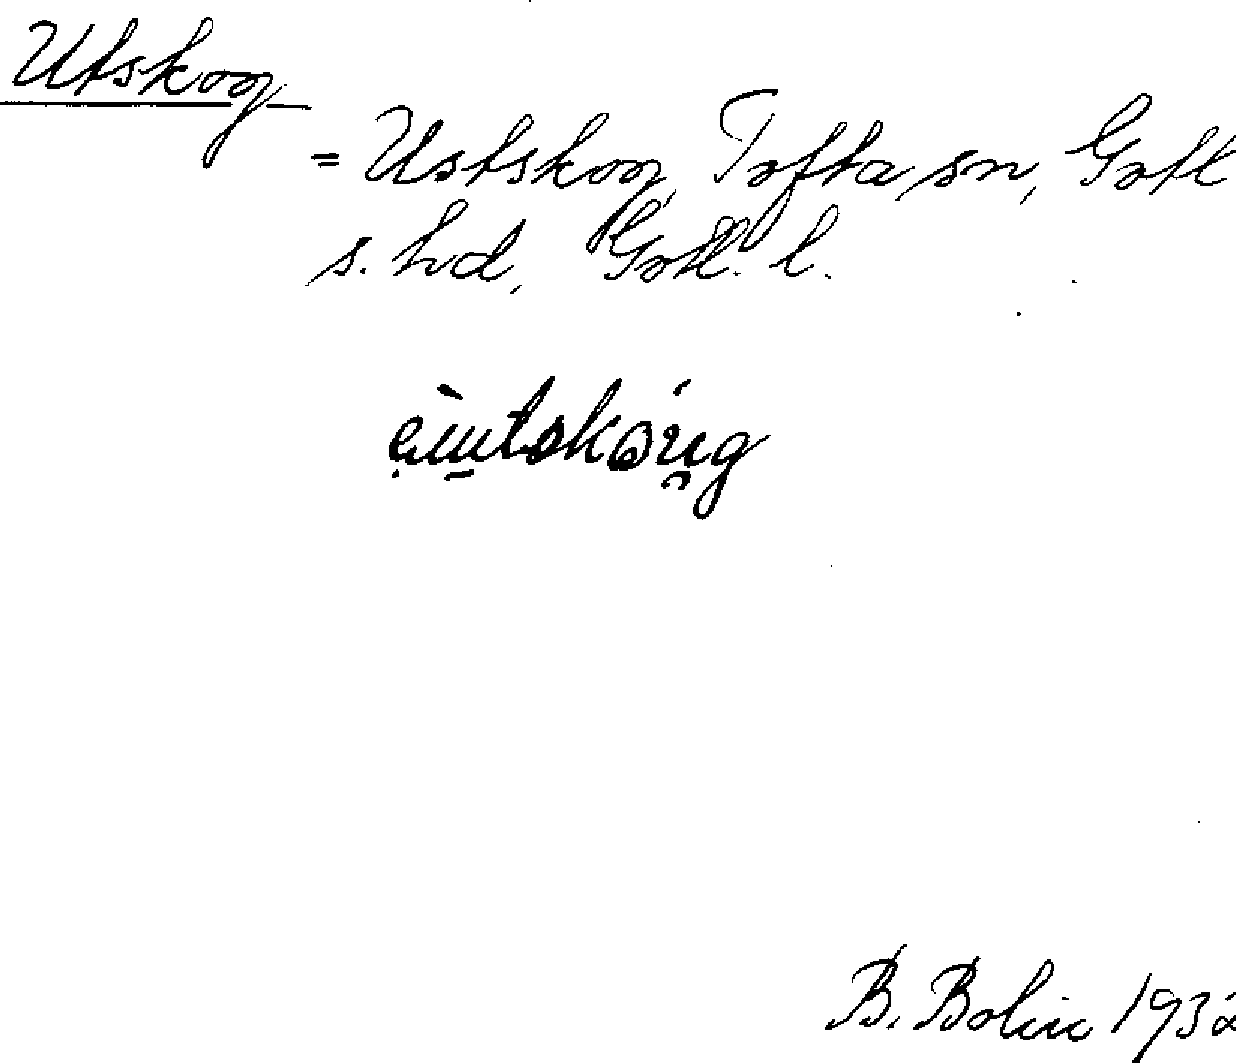 Utskog
= Ustskog, Tofta sn, Gotl
s. hd, Gotl. l.
B. Bolin 1932